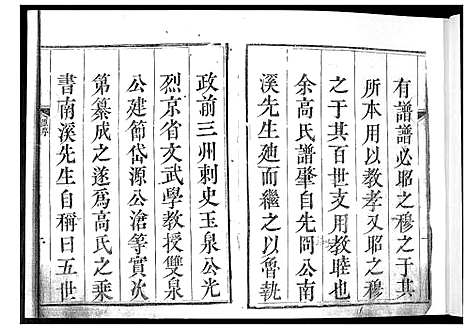 有譜譜必昭之穆之于其
所本用以教孝又昭之穆
之于其百世支用教睦也
余高氏譜肇自先岡公南
溪先生廸而繼之以魯執
政前三州刺史玉泉公光
烈京省文武學教授雙泉
公建節岱源公滄等實次
第纂成之遂爲高氏之乘
書南溪先生自稱曰五世